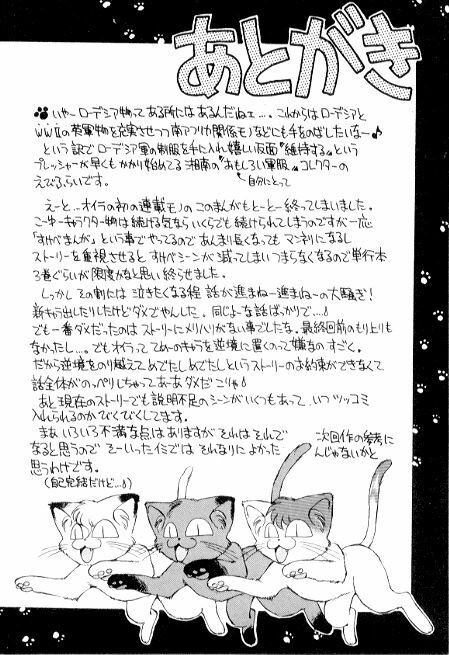 あとがき
いやーローデシア物ってある所にはあるんだねェ…。これからはローデシアと
WWⅡの英軍物を充実させつつ南アフリカ関係モノなどにも手をのばしたいなー♪
という訳でローデシア軍の制服を手に入れ嬉しい反面"維持する"という
プレッシャーが早くもかかり始めてる湘南の"おもしろい軍服"コレクターの
えびふらいです。
自分にとって
えーと…オイラの初の連載モノのこのまんがもとーとー終ってしまいました。
こーゆーキャラクター物は続ける気ならいくらでも続けられてしまうのですが一応
「すけべまんが」という事でやってるのであんまり長くなってもマンネリになるし
ストーリーを重視させると すけべシーンが減ってしまいつまらなくなるので単行本
3巻ぐらいが限度かなと思い終らせました。
しっかし その割には 泣きたくなる程 話が進まねー進まねーの大騒ぎ!
新キャラ出したりしたけどダメでやんした。同じよーな話ばっかりで…♪
でも一番ダメだったのは ストーリーにメリハリがない事でしたな。最終回前のもり上りも
なかったし…。でもオイラって てめーのキャラを逆境に置くのって嫌なの すごく。
だから逆境をのり越えてめでたしめでたしというストーリーのお約束ができなくて
話全体が のっぺりしちゃって あーあダメだ こりゃ♪
あと 現在のストーリーでも説明不足のシーンがいくつもあって、いつ ツッコミ
入れられるのか びくびくしてます。
まあ いろいろ不満な点はありますが それはそれで 次回作の参考に
なると思うので そーいったイミでは それなりに よかった んじゃないかと
思うわけです。
(自己完結だけど…♪)